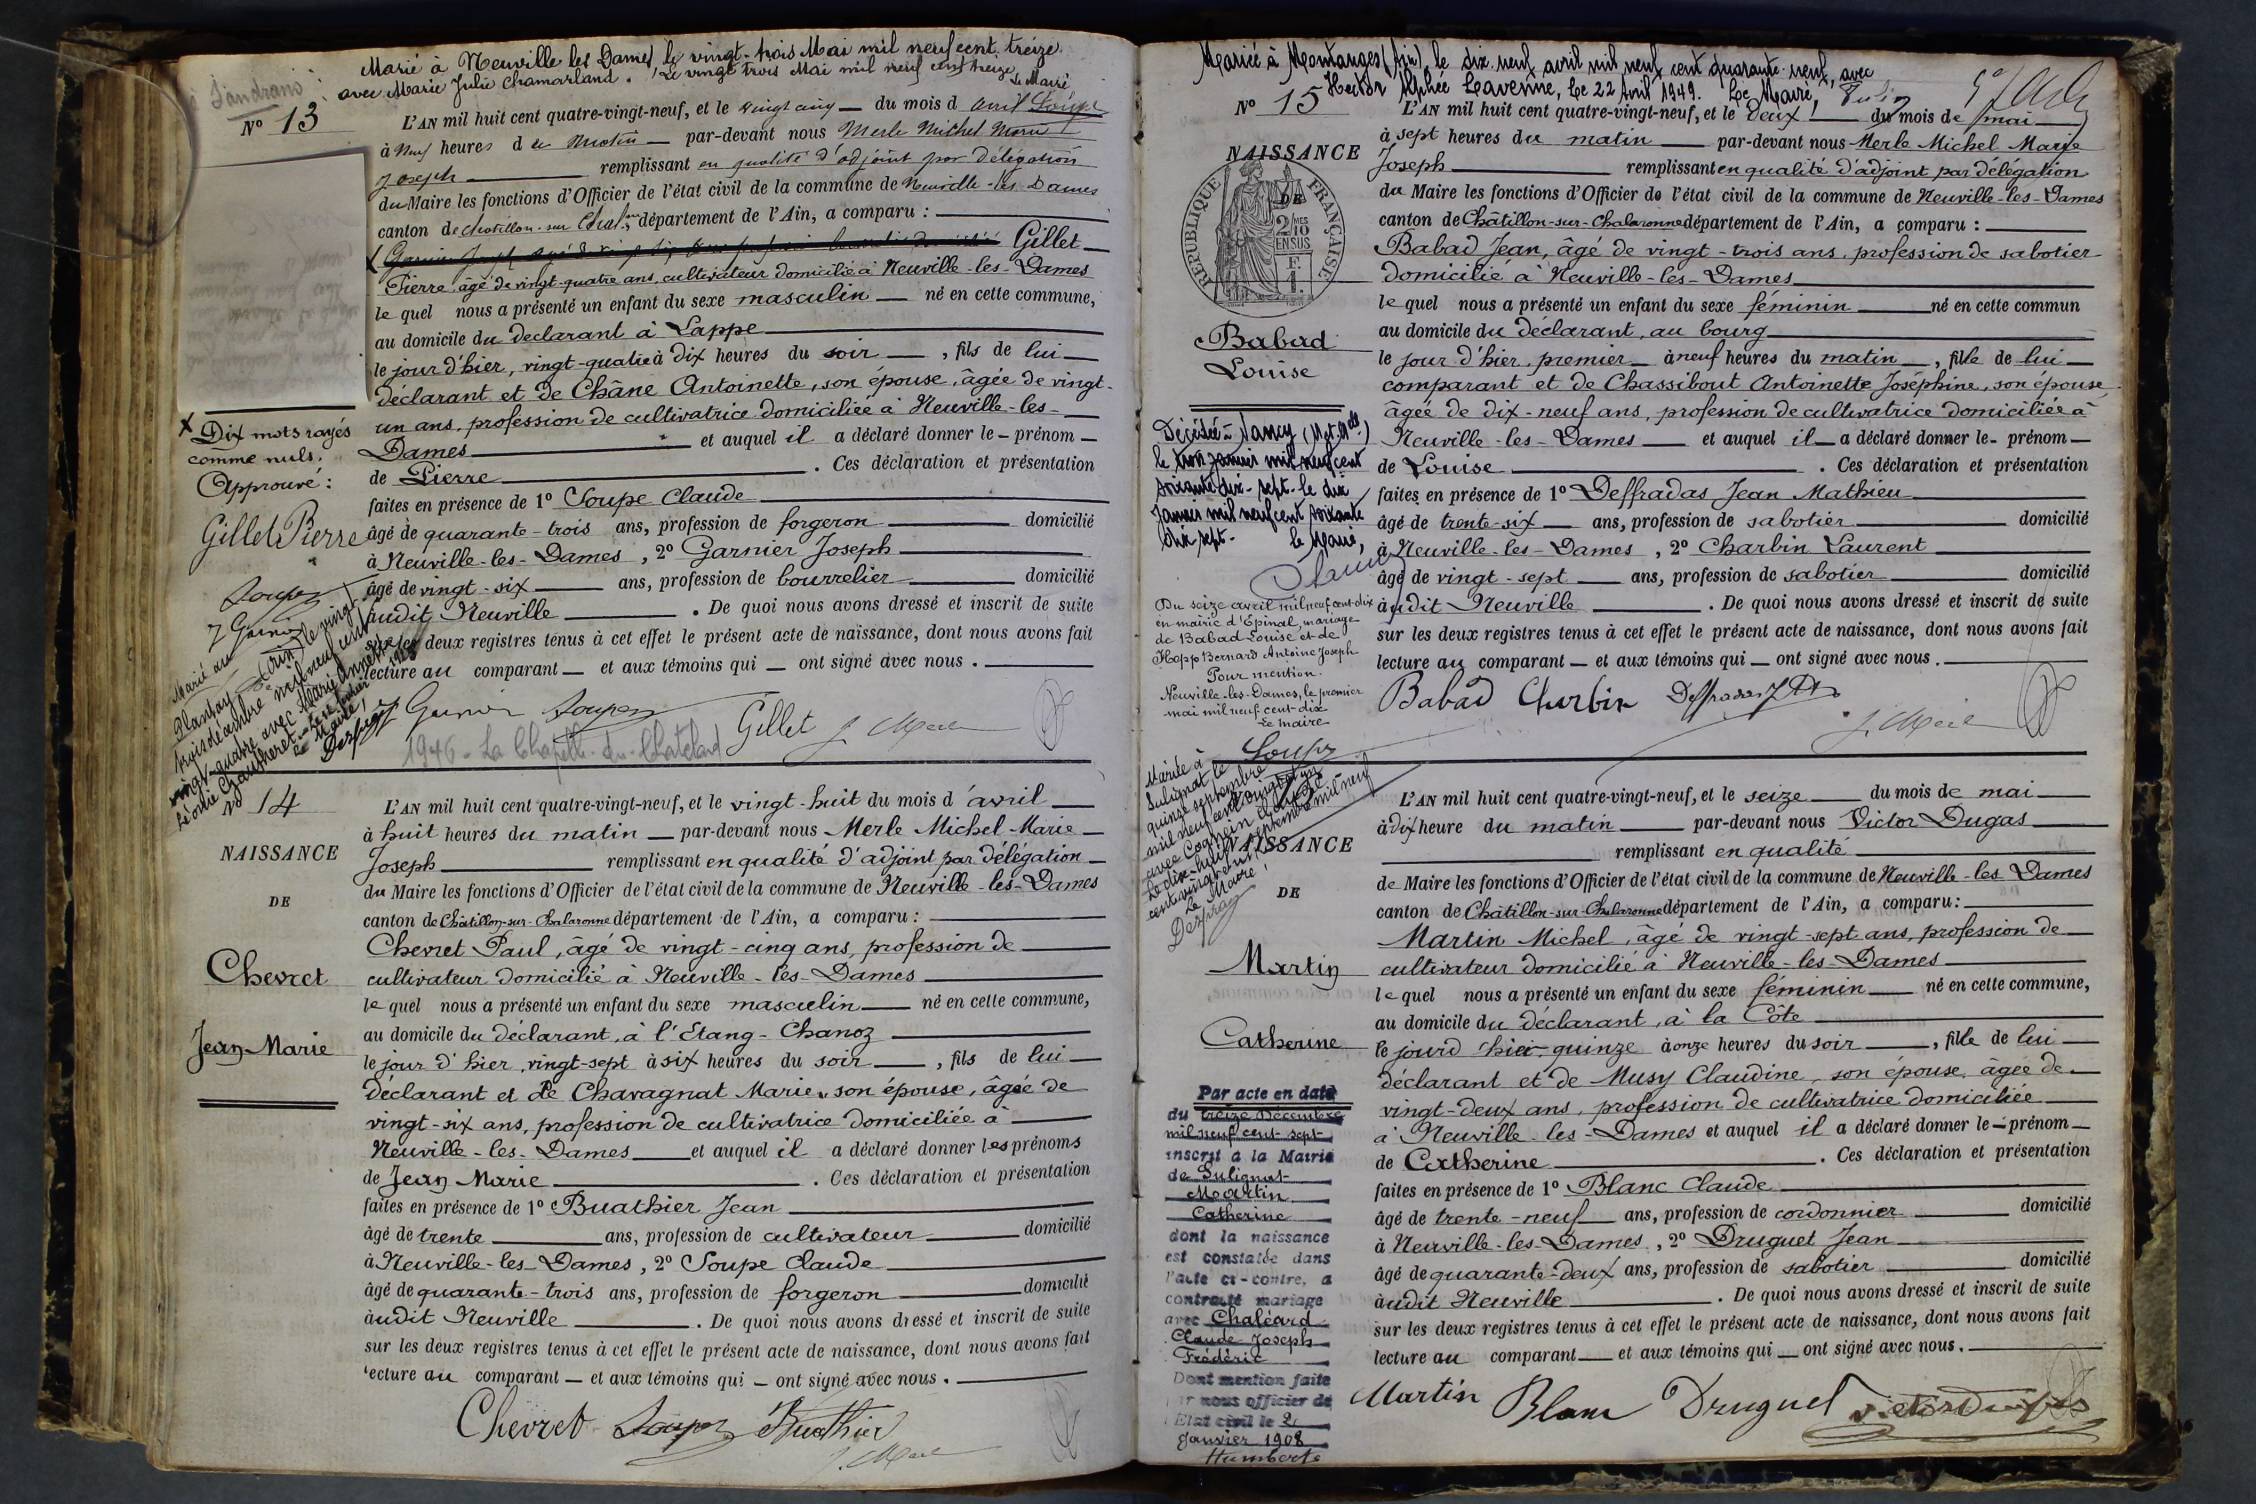 Marié à Neuville les Dames, le vingt-trois Mai mil neuf cent treize
avec Marie Julie Chamarland. Le vingt trois Mai mil neuf cent treize
Le Maire
Sandrans
N° 13
L'AN mil huit cent quatre-vingt-neuf, et le vingt cinq du mois d'avril
à neuf heures du matin par-devant nous Merle Michel Marie
Joseph remplissant en qualité d'adjoint par délégation
du Maire les fonctions d'Officier de l'état civil de la commune de Neuville-les-Dames
canton de Châtillon-sur-Chal.ne, département de l'Ain, a comparu :
Gillet
Pierre, âgé de vingt-quatre ans, cultivateur domicilié à Neuville-les-Dames
le quel nous a présenté un enfant du sexe masculin né en cette commune,
au domicile du déclarant à Lappe
le jour d'hier, vingt-quatre à dix heures du soir, fils de lui
déclarant et de Châne Antoinette, son épouse, âgée de vingt-
un ans, profession de cultivatrice domiciliée à Neuville-les-
Dames et auquel il a déclaré donner le prénom
de Pierre. Ces déclaration et présentation
faites en présence de 1° Soupe Claude
âgé de quarante-trois ans, profession de forgeron domicilié
à Neuville-les-Dames, 2° Garnier Joseph
âgé de vingt-six ans, profession de bourrelier domicilié
audit Neuville. De quoi nous avons dressé et inscrit de suite
sur les deux registres tenus à cet effet le présent acte de naissance, dont nous avons fait
lecture au comparant et aux témoins qui ont signé avec nous.
X Dix mots rayés
comme nuls.
Approuvé :
Gillet Pierre
Soupe
J Garnier
Marié au
Plantay (Ain) le vingt
trois décembre mil neuf cent
vingt-quatre avec Marie Annette
Léonie
Le Maire,
Garnier Soupe Gillet J. Merle
1946 - La Chapelle-du-Chatelard
N° 14
NAISSANCE
DE
Chevret
Jean-Marie
L'AN mil huit cent quatre-vingt-neuf, et le vingt-huit du mois d'avril
à huit heures du matin par-devant nous Merle Michel Marie
Joseph remplissant en qualité d'adjoint par délégation
du Maire les fonctions d'Officier de l'état civil de la commune de Neuville-les-Dames
canton de Châtillon-sur-Chalaronne département de l'Ain, a comparu :
Chevret Paul, âgé de vingt-cinq ans, profession de
cultivateur domicilié à Neuville-les-Dames
le quel nous a présenté un enfant du sexe masculin né en cette commune,
au domicile du déclarant, à l'Etang-Chanoz
le jour d'hier, vingt-sept à six heures du soir, fils de lui
déclarant et de Chavagnat Marie, son épouse, âgée de
vingt-six ans, profession de cultivatrice domiciliée à
Neuville-les-Dames et auquel il a déclaré donner les prénoms
de Jean Marie. Ces déclaration et présentation
faites en présence de 1° Buathier Jean
âgé de trente ans, profession de cultivateur domicilié
à Neuville-les-Dames, 2° Soupe Claude
âgé de quarante-trois ans, profession de forgeron domicilié
audit Neuville. De quoi nous avons dressé et inscrit de suite
sur les deux registres tenus à cet effet le présent acte de naissance, dont nous avons fait
lecture au comparant et aux témoins qui ont signé avec nous.
Chevret Soupe Buathier
J. Merle
Mariée à Montanges (Ain), le dix neuf avril mil neuf cent quarante neuf, avec
Hector Alphée Lavenne, Le 22 Avril 1949. Le Maire,
N° 15
NAISSANCE
DE
RÉPUBLIQUE FRANÇAISE
2/10MES
EN SUS
F.
1.
Babad
Louise
L'AN mil huit cent quatre-vingt-neuf, et le deux du mois de mai
à sept heures du matin par-devant nous Merle Michel Marie
Joseph remplissant en qualité d'adjoint par délégation
du Maire les fonctions d'Officier de l'état civil de la commune de Neuville-les-Dames
canton de Châtillon-sur-Chalaronne département de l'Ain, a comparu :
Babad Jean, âgé de vingt-trois ans, profession de sabotier
domicilié à Neuville-les-Dames
le quel nous a présenté un enfant du sexe féminin né en cette commun
au domicile du déclarant, au bourg
le jour d'hier, premier à neuf heures du matin, fille de lui
comparant et de Chassibout Antoinette Joséphine, son épouse
âgée de dix-neuf ans, profession de cultivatrice domiciliée à
Neuville-les-Dames et auquel il a déclaré donner le prénom
de Louise. Ces déclaration et présentation
faites en présence de 1° Deffradas Jean Mathieu
âgé de trente-six ans, profession de sabotier domicilié
à Neuville-les-Dames, 2° Charbin Laurent
âgé de vingt-sept ans, profession de sabotier domicilié
audit Neuville. De quoi nous avons dressé et inscrit de suite
sur les deux registres tenus à cet effet le présent acte de naissance, dont nous avons fait
lecture au comparant et aux témoins qui ont signé avec nous.
Décédée à Nancy (Mrt. Mlle)
le trois janvier mil neuf cent
soixante dix-sept. le dix
Janvier mil neuf cent soixante
dix sept. Le Maire,
Du seize avril mil neuf cent-dix
en mairie d'Epinal, mariage
de Babad Louise et de
Hopp Bernard Antoine Joseph
Pour mention.
Neuville-les-Dames, le premier
mai mil neuf cent-dix
Le maire
Soupe
Babad Charbin Deffradas J M
J. Merle
Mariée à
Sulignat le
quinze septembre
mil neuf cent vingt et un
avec
Le dix-huit septembre mil neuf
cent vingt et un
Le Maire,
NAISSANCE
DE
Martin
Catherine
L'AN mil huit cent quatre-vingt-neuf, et le seize du mois de mai
à dix heure du matin par-devant nous Victor Dugas
remplissant en qualité
de Maire les fonctions d'Officier de l'état civil de la commune de Neuville-les-Dames
canton de Châtillon-sur-Chalaronne département de l'Ain, a comparu :
Martin Michel, âgé de vingt-sept ans, profession de
cultivateur domicilié à Neuville-les-Dames
le quel nous a présenté un enfant du sexe féminin né en cette commune,
au domicile du déclarant, à la Côte
le jour d'hier, quinze à onze heures du soir, fille de lui
déclarant et de Musy Claudine, son épouse, âgée de
vingt-deux ans, profession de cultivatrice domiciliée
à Neuville-les-Dames et auquel il a déclaré donner le prénom
de Catherine. Ces déclaration et présentation
faites en présence de 1° Blanc Claude
âgé de trente-neuf ans, profession de cordonnier domicilié
à Neuville-les-Dames, 2° Druguet Jean
âgé de quarante-deux ans, profession de sabotier domicilié
audit Neuville. De quoi nous avons dressé et inscrit de suite
sur les deux registres tenus à cet effet le présent acte de naissance, dont nous avons fait
lecture au comparant et aux témoins qui ont signé avec nous.
Par acte en date
du treize Décembre
mil neuf cent sept
inscrit à la Mairie
de Sulignat
Martin
Catherine
dont la naissance
est constatée dans
l'acte ci-contre, a
contracté mariage
avec Chaléard
Claude Joseph
Frédéric
Dont mention faite
par nous officier de
l'Etat civil le 2
Janvier 1908
Humbert
Martin Blanc Druguet Victor Dugas